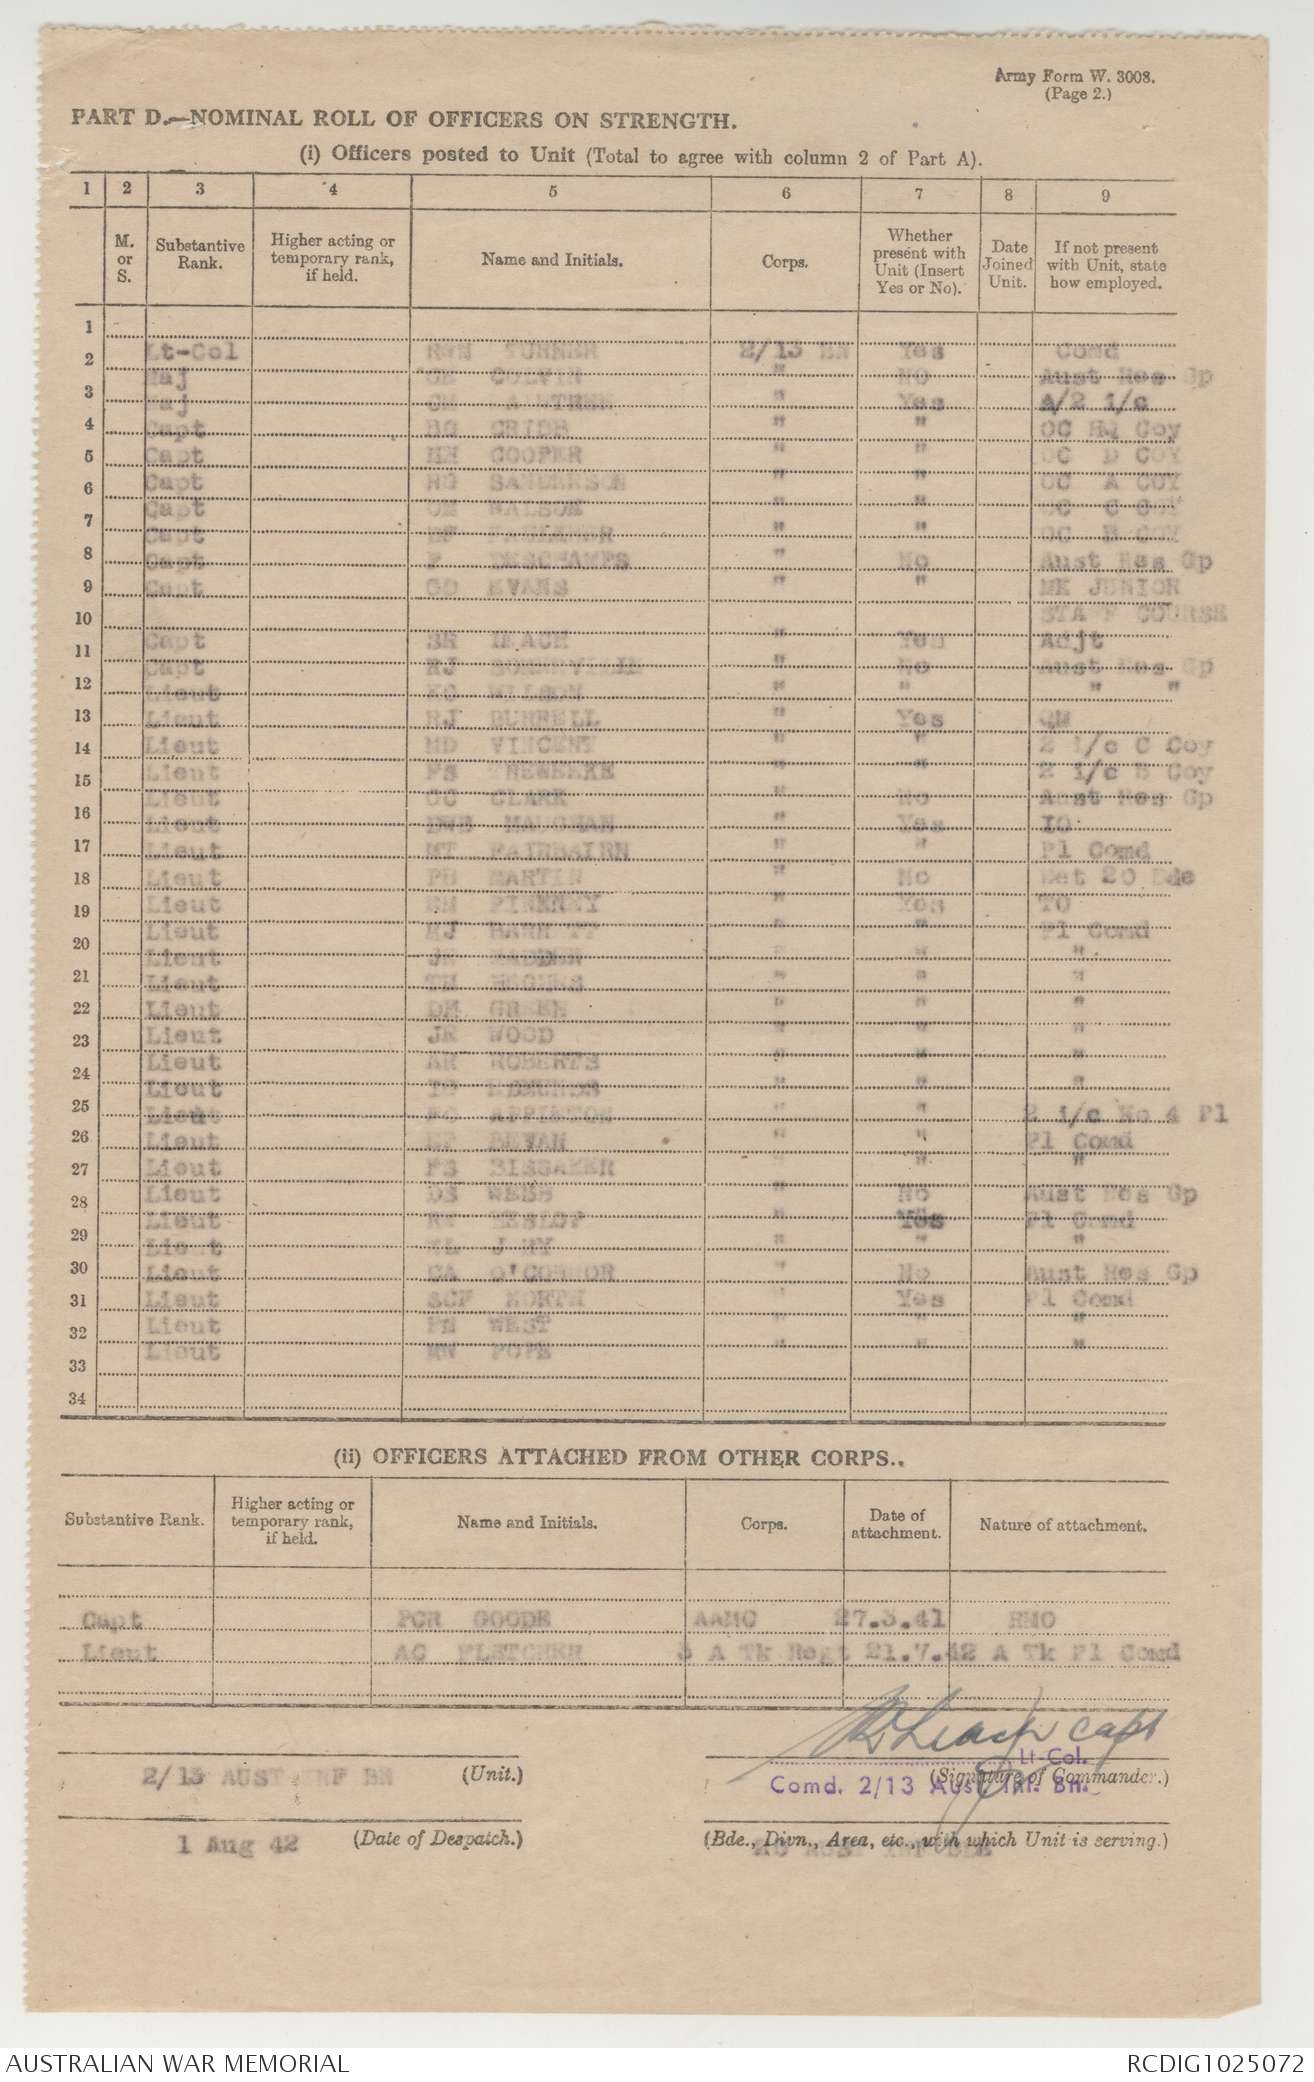 Army Form W. 3008.
(Page 2.)
PART D.—NOMINAL ROLL OF OFFICERS ON STRENGTH.
(i) Officers posted to Unit (Total to agree with column 2 of Part A).
1 2 3 4 5 6 7 8 9
M. or S. Substantive Rank. Higher acting or temporary rank, if held. Name and Initials. Corps. Whether present with Unit (Insert Yes or No). Date Joined Unit. If not present with Unit, state how employed.
1
2 Lt-Col TURNER 2/13 BN Yes Comd
Maj COLVIN " NO Aust Res Gp
3 Maj " Yes A/2 i/c
4 Capt " " OC HQ Coy
5 Capt COOPER " " OC D COY
6 Capt SANDERSON " " OC A COY
7 Capt WALSOE " " OC C COY
Capt " " OC B COY
8 Capt DESCHAMPS " No Aust Res Gp
9 Capt EVANS " " ME JUNIOR
10 STAFF COURSE
11 Capt LEACH " Yes Adjt
Capt RJ SOMERVILLE " No Aust Res Gp
12 Lieut WILSON " " " "
13 Lieut RJ BURRELL " Yes QM
14 Lieut VINCENT " " 2 i/c C Coy
15 Lieut FS TREWEEKE " " 2 i/c B Coy
Lieut CLARK " No Aust Res Gp
16 Lieut DWB MAUGHAN " Yes IO
17 Lieut MT FAIRBAIRN " " Pl Comd
18 Lieut MARTIN " No Det 20 Bde
19 Lieut PINKNEY " Yes TO
20 Lieut " " Pl Comd
Lieut " " "
21 Lieut " " "
22 Lieut GREEN " " "
23 Lieut WOOD " " "
Lieut ROBERTS " " "
24 Lieut " " "
25 Lieut APPLETON " " 2 i/c No 4 Pl
26 Lieut BEVAN " " Pl Comd
27 Lieut FS BISSAKER " " "
28 Lieut WEBB " No Aust Res Gp
Lieut " Yes Pl Comd
29 Lieut " " "
30 Lieut O'CONNOR " No Aust Res Gp
31 Lieut NORTH " Yes Pl Comd
32 Lieut WEST " " "
33 Lieut POPE " " "
34
(ii) OFFICERS ATTACHED FROM OTHER CORPS.
Substantive Rank. Higher acting or temporary rank, if held. Name and Initials. Corps. Date of attachment. Nature of attachment.
Capt PCR GOODE AAMC 27.3.41 RMO
Lieut AC FLETCHER 3 A Tk Regt 21.7.42 A Tk Pl Comd
Leach Capt
Lt-Col.
2/13 AUST INF BN (Unit.) (Signature of Commander.)
Comd. 2/13 Aust. Inf. Bn.
1 Aug 42 (Date of Despatch.) (Bde., Divn., Area, etc., with which Unit is serving.)
20 AUST INF BDE
AUSTRALIAN WAR MEMORIAL RCDIG1025072